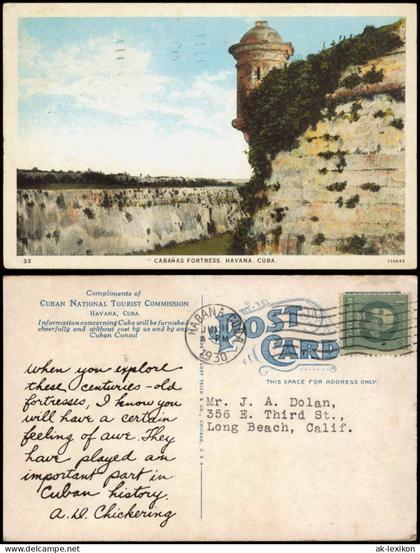 38
CABAÑAS FORTRESS. HAVANA. CUBA.
110649
Compliments of
CUBAN NATIONAL TOURIST COMMISSION
HAVANA, CUBA
Information concerning Cuba will be furnished
cheerfully and without cost by us and any
Cuban Consul
When you explore
these centuries-old
fortresses, I know you
will have a certain
feeling of awe. They
have played an
important part in
Cuban history.
A. D. Chickering
HABANA
1930
POST
CARD
THIS SPACE FOR ADDRESS ONLY
Mr. J. A. Dolan,
356 E. Third St.,
Long Beach, Calif.